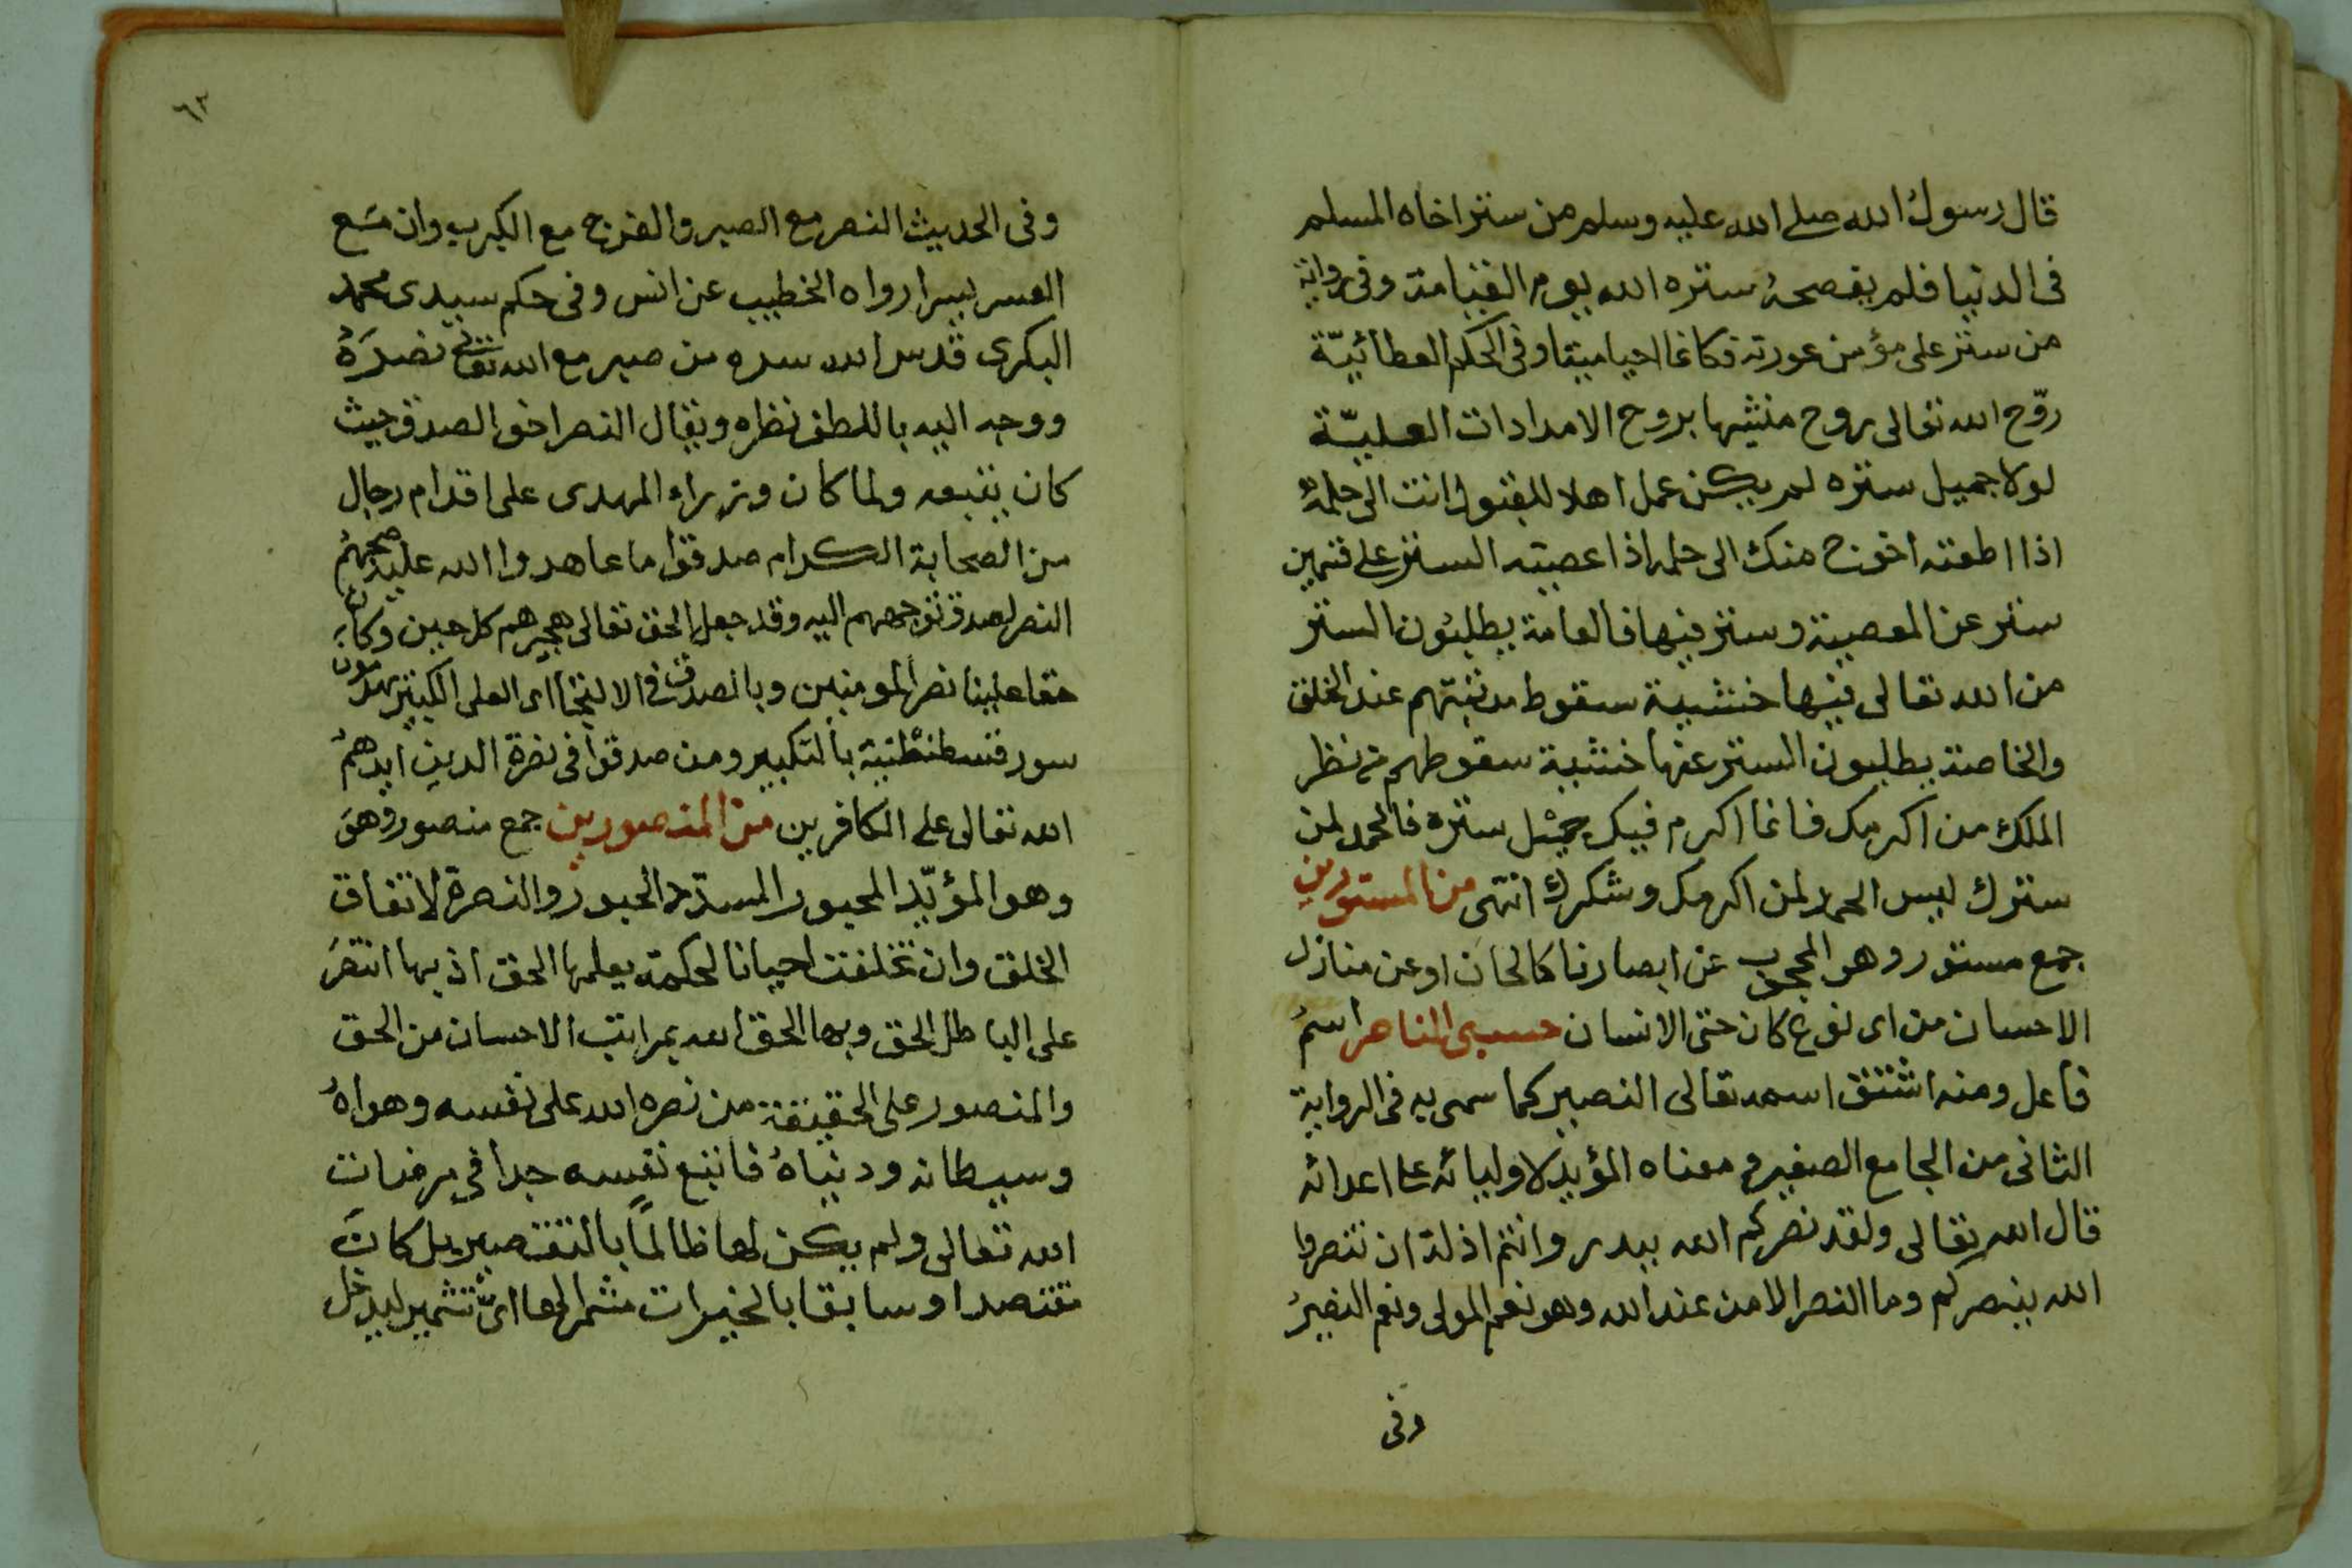 قال رسول الله صلى الله عليه وسلم من ستر اخاه المسلم
فى الدنيا فلم يفضحه ستره الله يوم القيامة وفى رواية
من ستر على مؤمن عورته فكانما احيا ميتا وفى الحكم العطائيّة
روّح الله تعالى روح منشيها بروح الامدادات العليّة
لولا جميل ستره لم يكن عمل اهلا للقبول انت الى حلمه
اذا اطعته احوج منك الى حلمه اذا عصيته الستر على قسمين
ستر عن المعصية وستر فيها فالعامة يطلبون الستر
من الله تعالى فيها خشية سقوط مرتبتهم عند الخلق
والخاصة يطلبون الستر عنها خشية سقوطهم من نظر
الملك من اكرمك فانما اكرم فيك جميل ستره فالحمد لمن
سترك ليس الحمد لمن اكرمك وشكرك انتهى من المستورين
جمع مستور وهو المحجوب عن ابصارنا كالجان او عن منازل
الاحسان من اى نوع كان حتى الانسان حسبى الناصر اسم
فاعل ومنه اشتق اسمه تعالى النصير كما سمى به فى الرواية
الثانى من الجامع الصغير ومعناه المؤيد لاوليائه على اعدائه
قال الله تعالى ولقد نصركم الله ببدر وانتم اذلة ان تنصروا
الله ينصركم وما النصر الا من عند الله وهو نعم المولى ونعم النصير
وفى
٦٢
وفى الحديث النصر مع الصبر والفرج مع الكرب وان مع
العسر يسرا رواه الخطيب عن انس وفى حكم سيدى محمد
البكرى قدس الله سره من صبر مع الله تعالى نصره
ووجه اليه باللطف نظره ويقال النصر اخو الصدق حيث
كان يتبعه ولما كان وزراء المهدى على اقدام رجال
من الصحابة الكرام صدقوا ما عاهدوا الله عليه صحبهم
النصر لصدق توجههم اليه وقد جعل الحق تعالى هجيرهم كل حين وكان
حقا علينا نصر المومنين وبالصدق فى الالتجا الى العلى الكبير يهدمون
سور قسطنطنية بالتكبير ومن صدقوا فى نصرة الدين ايدهم
الله تعالى على الكافرين من المنصورين جمع منصور وهو
وهو المؤيّد المحبور المسدّد الحبور والنصرة لاتفاق
الخلق وان تخلفت احيانا لحكمة يعلمها الحق اذ بها انتصر
على الباطل الحق وبها الحق الله بمراتب الاحسان من الحق
والمنصور على الحقيقة من نصره الله على نفسه وهواه
وسيطانه ودنياه فاتبع نفسه جدا فى مرضات
الله تعالى ولم يكن لها ظالما بالتقصير بل كان
مقتصدا وسابقا بالخيرات مشمرا لها اىّ تشمير ليدخل